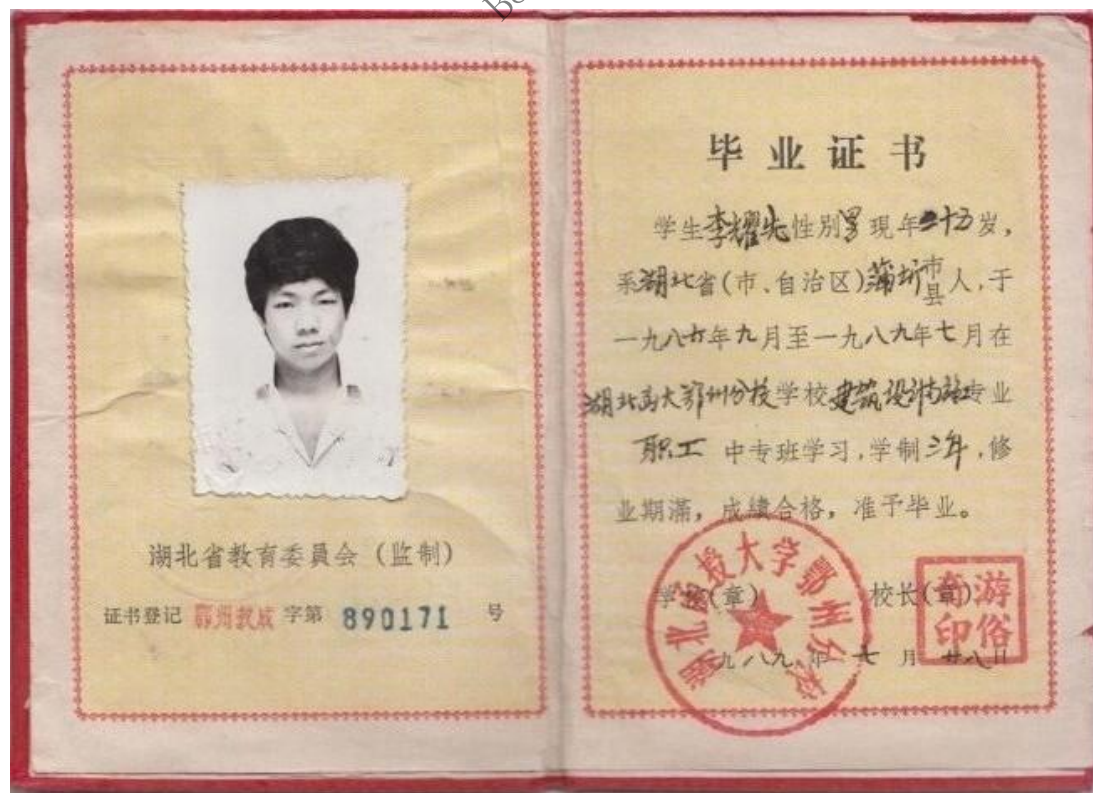 湖北省教育委員会（监制）
证书登记 鄂州教成 字第 890171 号
毕业证书
学生李耀先性别男现年二十五岁，
系湖北省(市、自治区)蒲圻市县人，于
一九八六年九月至一九八九年七月在
湖北函大鄂州分校学校建筑设计与施工专业
职工 中专班学习，学制三年，修
业期满，成绩合格，准予毕业。
学校(章) 校长(章)
湖北函授大学鄂州分校
游俗印
一九八九年七月廿八日